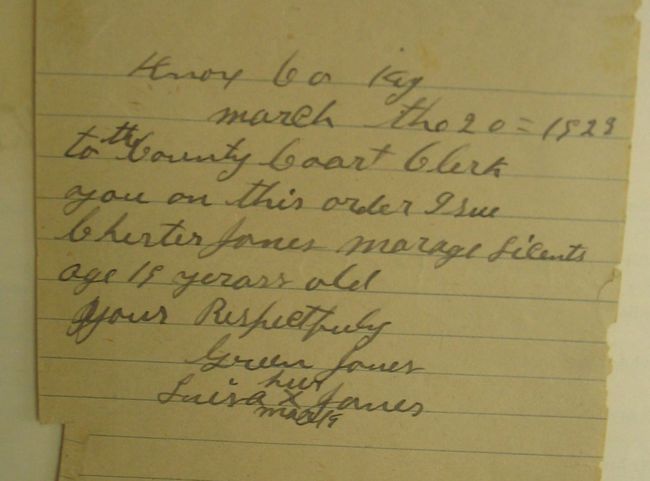 Knox Co Ky
march the 20 = 1929
to the County Coart Clerk
you on this order Isue
Chester Jones marage Licents
age 19 yerars old
yours Respectfuly
Green Jones
her
Luisa x Jones
mark